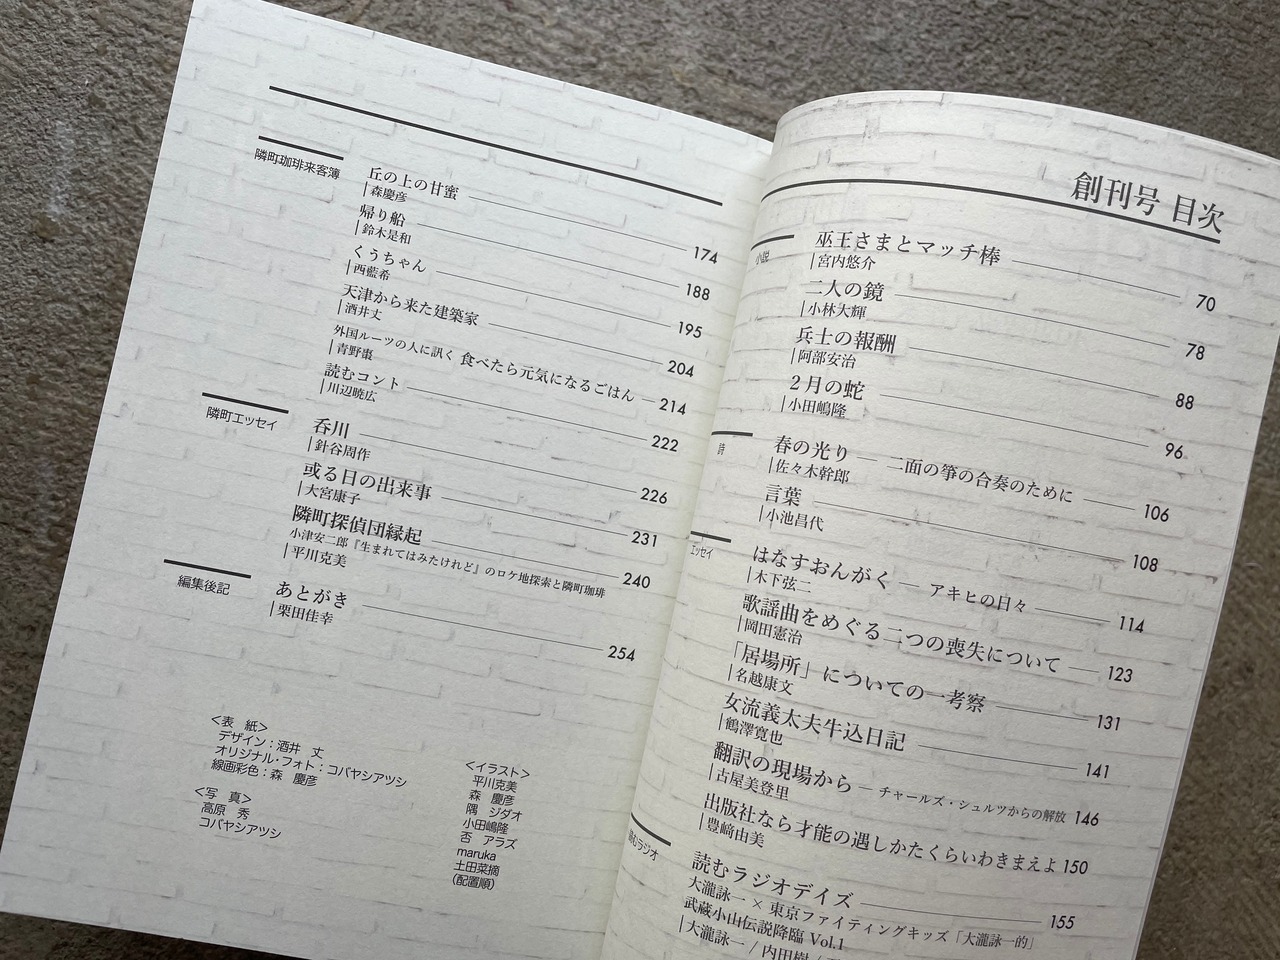 創刊号 目次
小説
巫王さまとマッチ棒 70
宮内悠介
二人の鏡 78
小林大輝
兵士の報酬 88
阿部安治
2月の蛇 96
小田嶋隆
詩
春の光り — 二面の箏の合奏のために 106
佐々木幹郎
言葉 108
小池昌代
エッセイ
はなすおんがく — アキヒの日々 114
木下弦二
歌謡曲をめぐる二つの喪失について 123
岡田憲治
「居場所」についての一考察 131
名越康文
女流義太夫牛込日記 141
鶴澤寛也
翻訳の現場から — チャールズ・シュルツからの解放 146
古屋美登里
出版社なら才能の遇しかたくらいわきまえよ 150
豊﨑由美
読むラジオ
読むラジオデイズ 155
大瀧詠一 × 東京ファイティングキッズ「大瀧詠一的」
武蔵小山伝説降臨 Vol.1
大瀧詠一 / 内田樹 /
隣町珈琲来客簿
丘の上の甘蜜 174
森慶彦
帰り船 188
鈴木是和
くうちゃん 195
西藍希
天津から来た建築家 204
酒井丈
外国ルーツの人に訊く 食べたら元気になるごはん 214
青野棗
読むコント 222
川辺暁広
隣町エッセイ
呑川 226
針谷周作
或る日の出来事 231
大宮康子
隣町探偵団縁起 240
小津安二郎『生まれてはみたけれど』のロケ地探索と隣町珈琲
平川克美
編集後記
あとがき 254
栗田佳幸
<表　紙>
デザイン：酒井　丈
オリジナル・フォト：コバヤシアツシ
線画彩色：森　慶彦
<写　真>
高原　秀
コバヤシアツシ
<イラスト>
平川克美
森　慶彦
隅　ジダオ
小田嶋隆
否　アラズ
maruka
土田菜摘
（配置順）